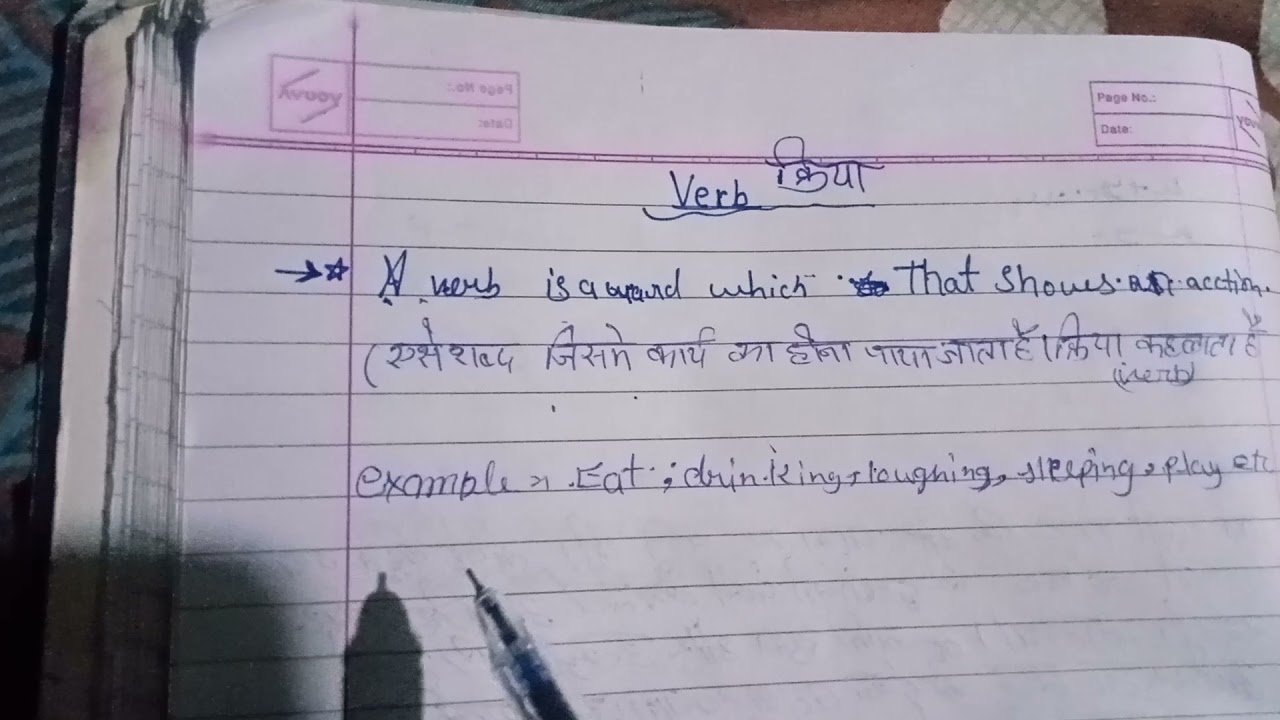 Page No.:
Date:
Verb क्रिया
→☆ A verb is a word which That shows an acction.
(एसे शब्द जिसमे कार्य का होना पाया जाता है। क्रिया कहलाता है
(verb)
example → Eat, drinking, loughing, sleeping, play etc